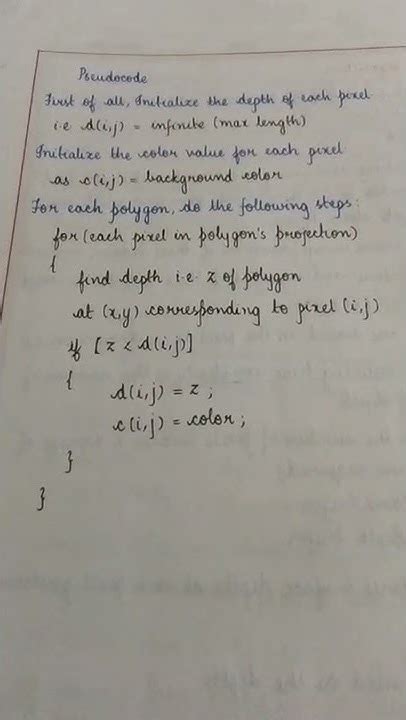 Pseudocode
First of all, Initialize the depth of each pixel
i.e d(i,j) = infinite (max length)
Initialize the color value for each pixel
as c(i,j) = background color
For each polygon, do the following steps:
for (each pixel in polygon's projection)
{
find depth i.e. z of polygon
at (x,y) corresponding to pixel (i,j)
if [z < d(i,j)]
{
d(i,j) = z ;
c(i,j) = color ;
}
}